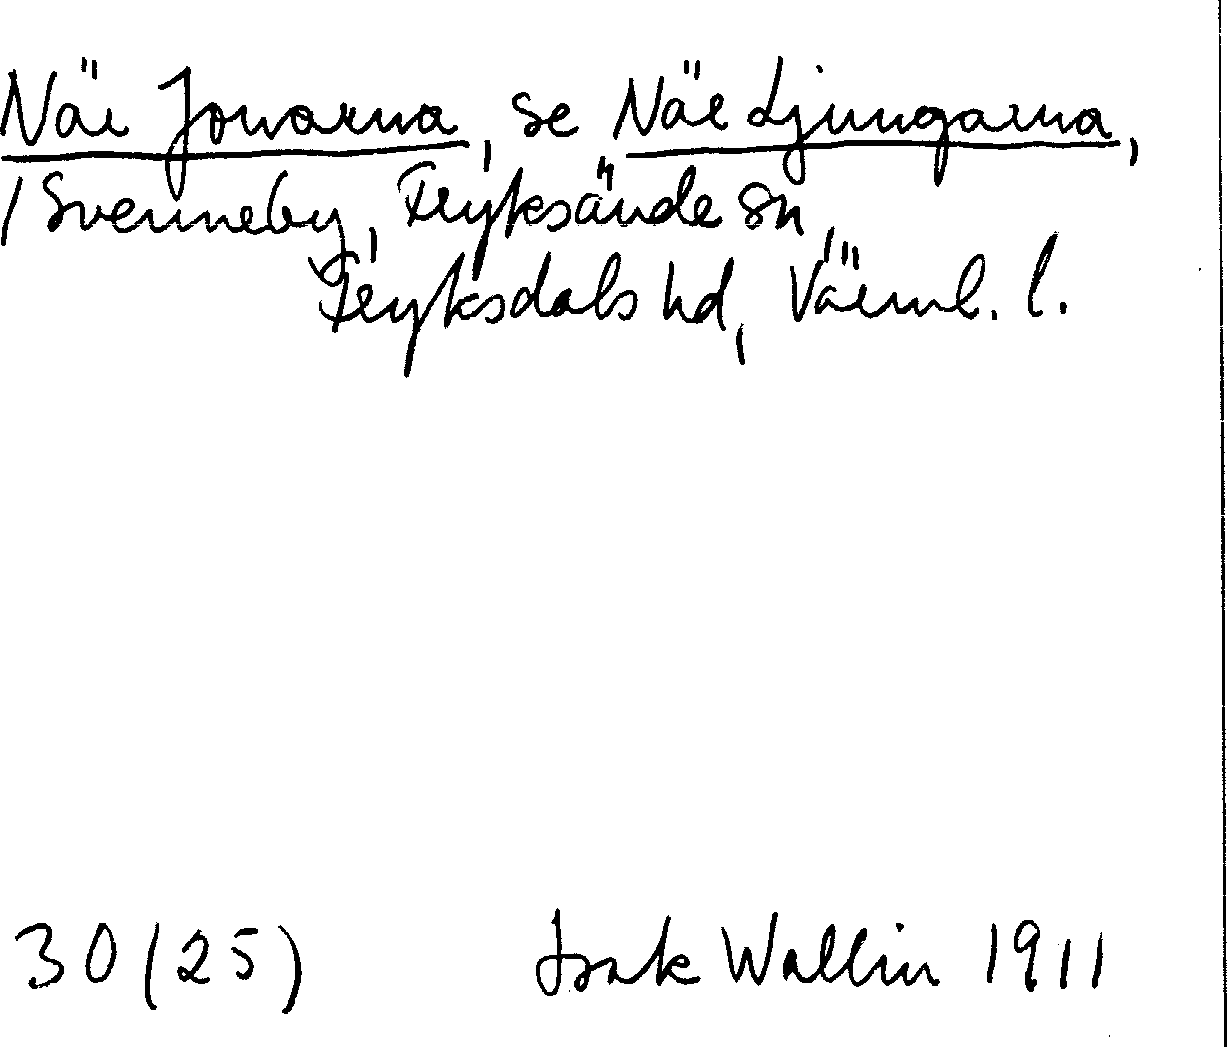 När Jonarna, se När Ljungarna,
/Svenneby, Fryksände sn,
Fryksdals hd, Värml. l.
30(25) Isak Wallin 1911